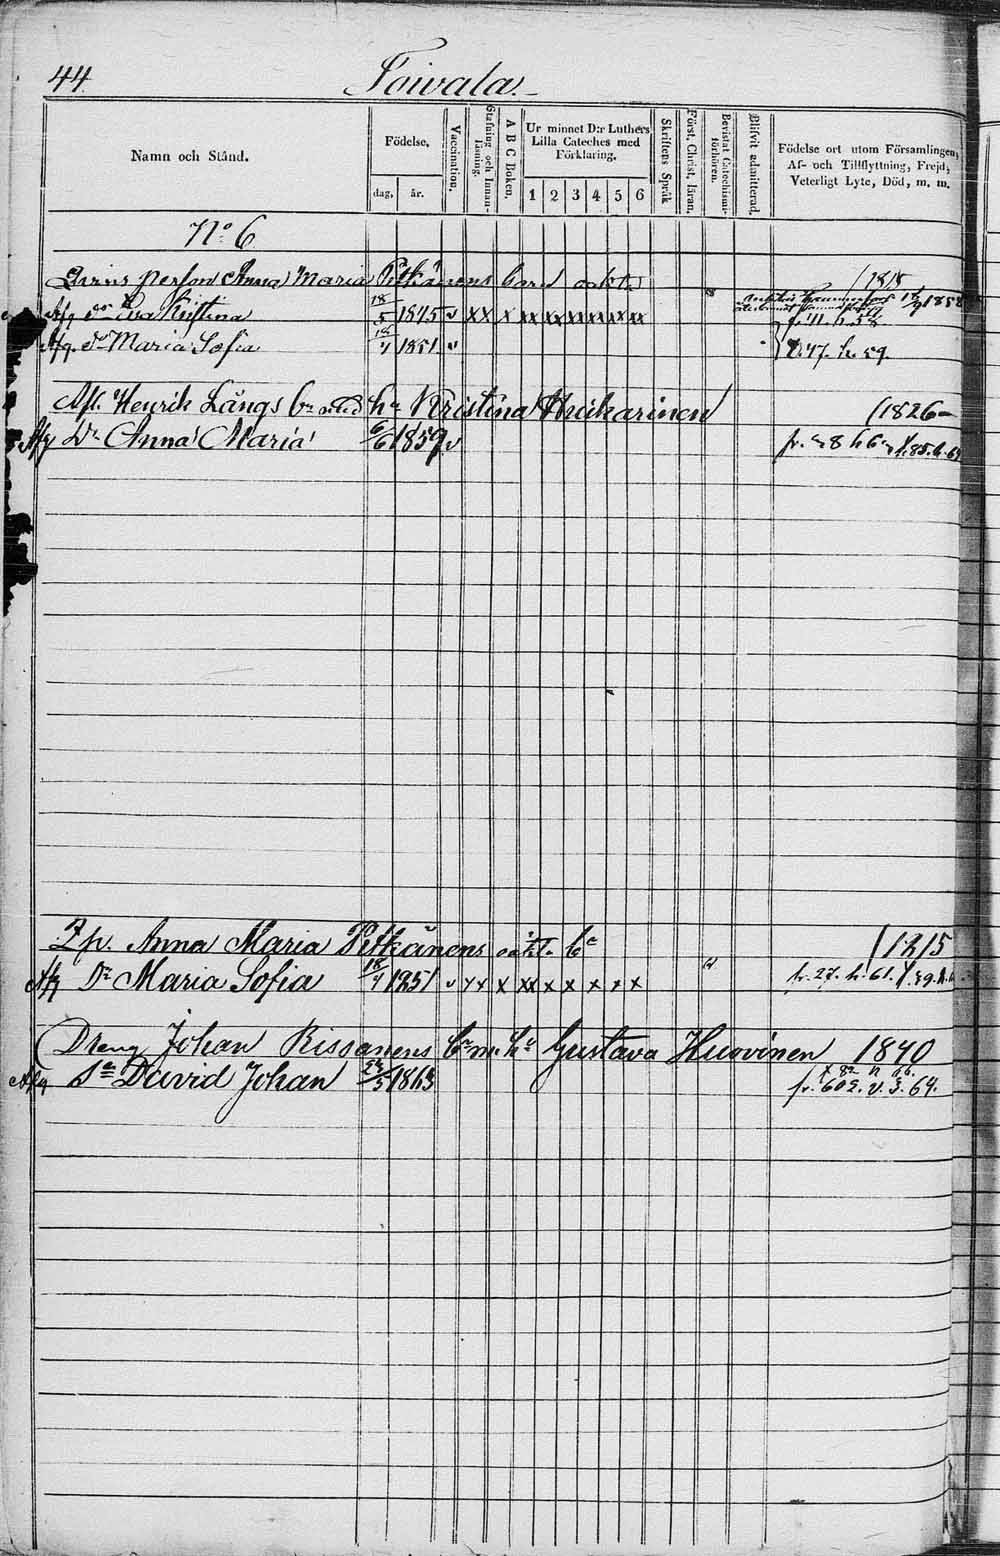 44. Toivala.
Namn och Stånd.
Födelse,
dag.
år.
Vaccination.
Stafning och Innan-läsning.
A B C Boken.
Ur minnet D:r Luthers Lilla Cateches med Förklaring.
1 2 3 4 5 6
Skriftens Språk
Först. Christ. läran.
Bevistat Catechismi-förhören.
Blifvit admitterad.
Födelse ort utom Församlingen,
Af- och Tillflyttning, Frejd,
Veterligt Lyte, Död, m. m.
No 6
Person Anna Maria Pitkänens barn oäkta (1815
Afg do Eva Kristina 18/5 1845 v xx x xx xx xx xx xx xx
Afg. dr Maria Sofia 18/4 1851 v f. 47. h. 59.
Afl. Henrik Långs bn med hu Kristina Huikarinen (1826
Afg Dr Anna Maria 6/6 1859 v
Ip. Anna Maria Pitkänens oäkta bn (1815
Afg Dr Maria Sofia 18/4 1851 v x x x xx x x x x x fr. 27. h. 61.
Dreng Johan Rissanens bn m. hu Gustava Huovinen 1840
Afg Sn David Johan 1863 fr. 602. v. 3. 64.